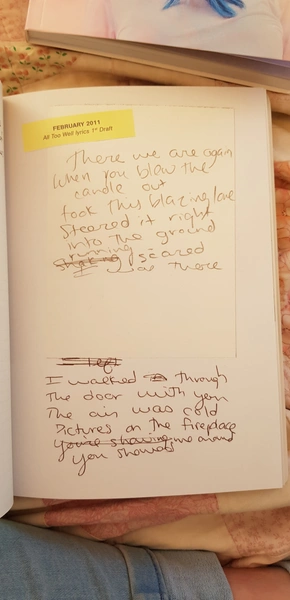 FEBRUARY 2011
All Too Well lyrics 1st Draft
There we are again
When you blew the
candle out
took this blazing love
Steared it right
into the ground
running
shaking scared
I was there
I walked through
The door with you
The air was cold
Pictures on the fireplace
you're showing me around
You showed